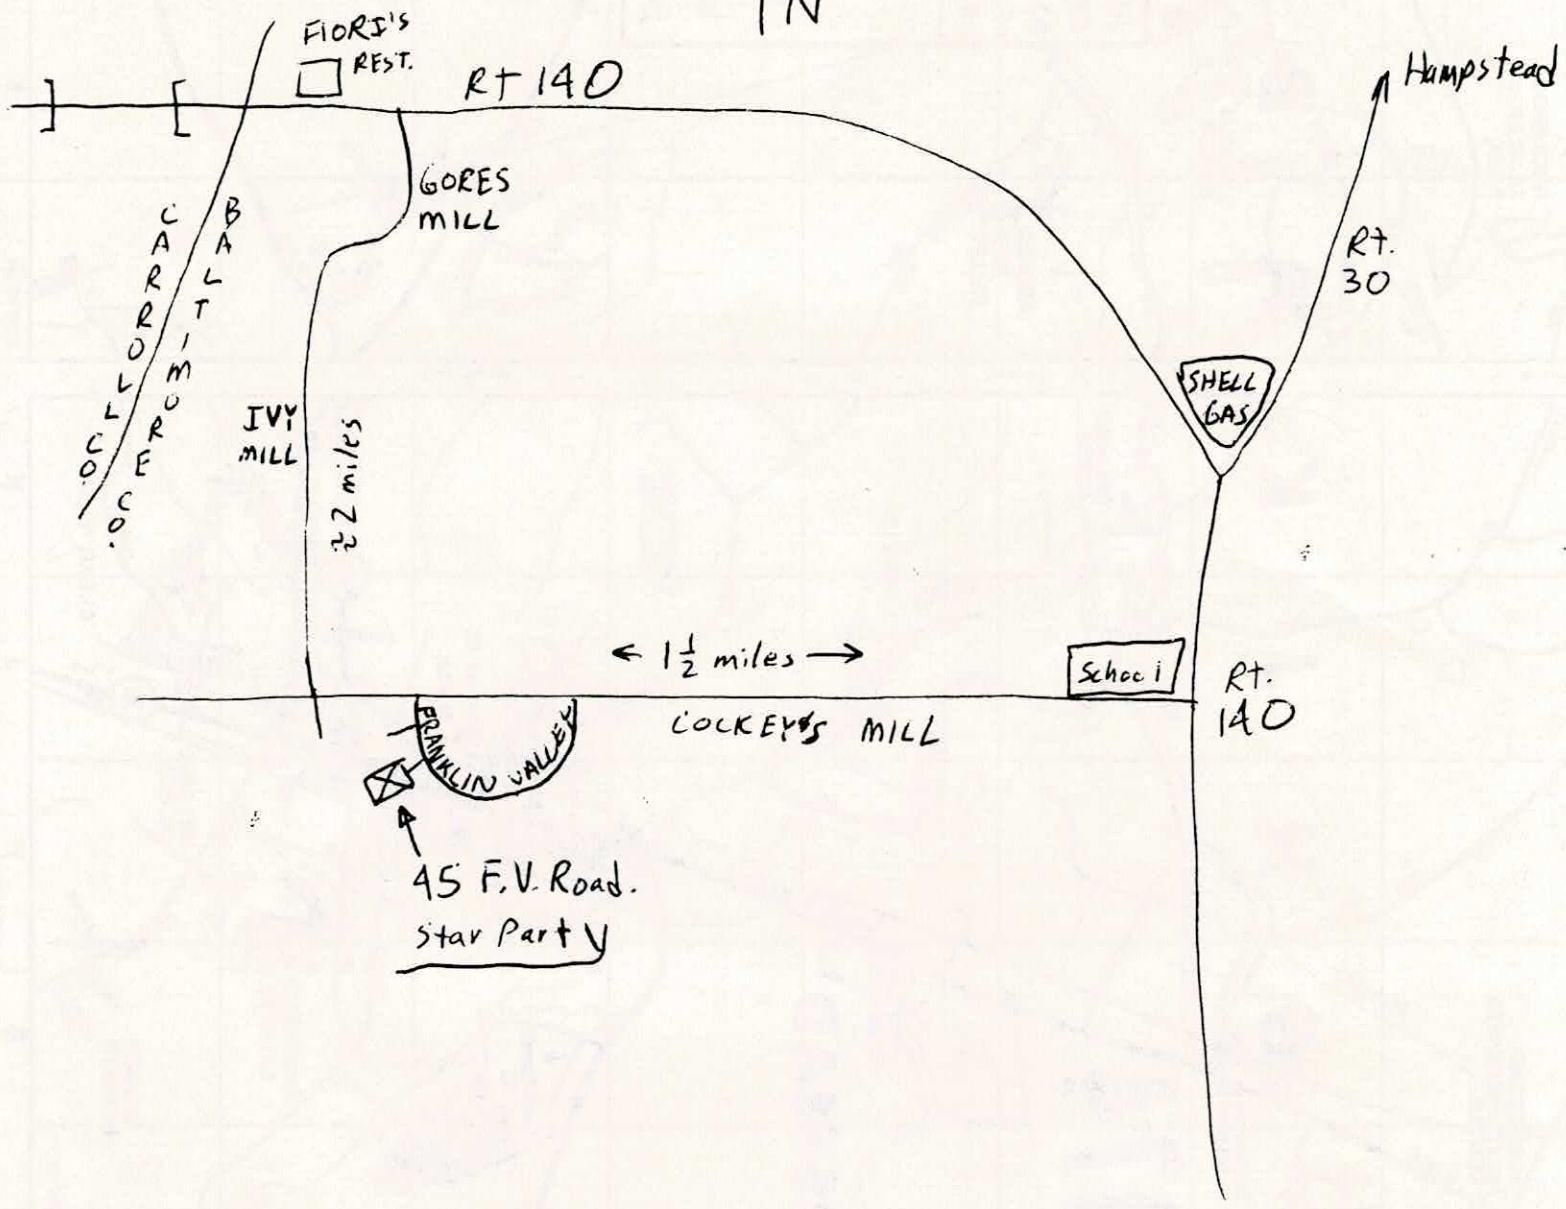 N
FIORI'S
REST.
Rt 140
Hampstead
GORES
MILL
CARROLL CO.
BALTIMORE CO.
Rt.
30
SHELL
GAS
IVY
MILL
≈2 miles
← 1 1/2 miles →
School
Rt.
140
COCKEY'S MILL
FRANKLIN VALLEY
45 F.V. Road.
Star Party